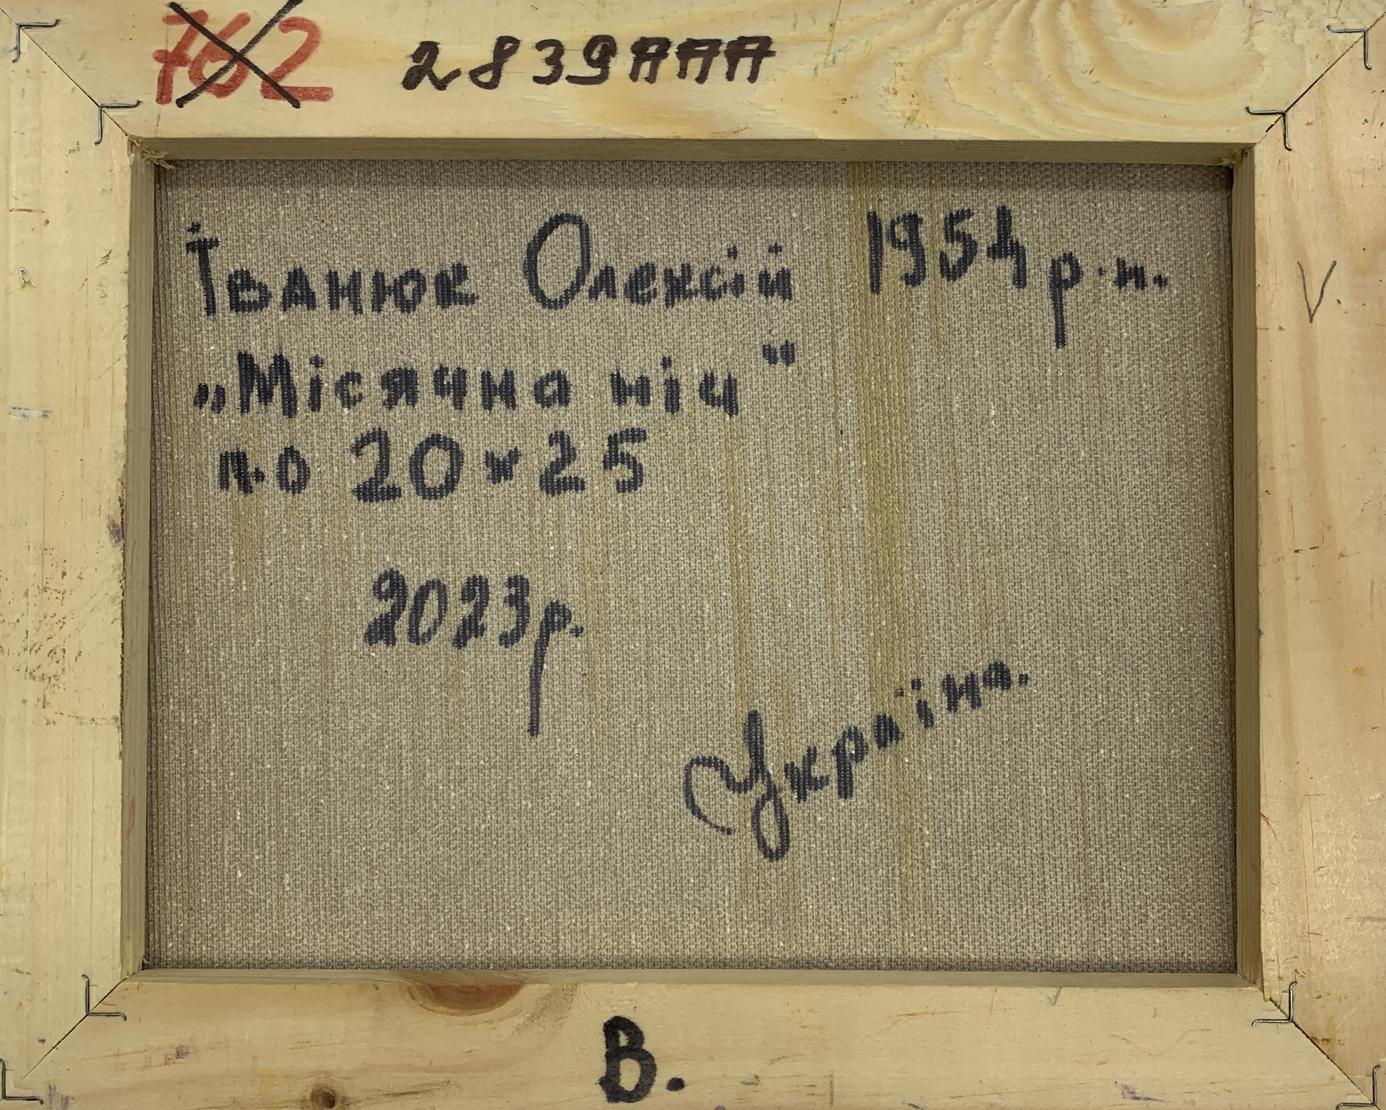 762 2839AAA
Іванюк Олексій 1954 р.н.
„Місячна ніч"
п.о 20x25
2023р.
Україна.
V
В.